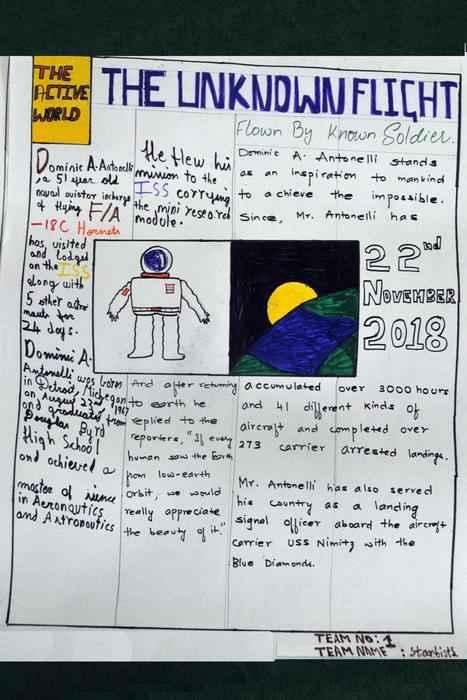 THE
ACTIVE
WORLD
THE UNKNOWN FLIGHT
Flown By Known Soldier.
Dominic A. Antonelli
, a 51 year old
naval aviator incharge
of flying F/A
-18C Hornets
has visited
and lodged
on the ISS
along with
5 other astro
nauts for
24 days.
Dominic A.
Antonelli was born
in Detroit, Michegan
on August 23rd, 1967
and graduated from
Douglas Byrd
High School
and achieved a
master of science
in Aeronautics
and Astronautics
He flew his
mission to the
ISS carrying
the mini research
module.
And after returning
to earth he
replied to the
reporters, "If every
human saw the Earth
from low-earth
Orbit, we would
really appreciate
the beauty of it."
Dominic A. Antonelli stands
as an inspiration to mankind
to achieve the impossible.
Since, Mr. Antonelli has
22nd
NOVEMBER
2018
accumulated over 3000 hours
and 41 different kinds of
aircraft and completed over
273 carrier arrested landings.
Mr. Antonelli has also served
his country as a landing
signal officer aboard the aircraft
carrier USS Nimitz with the
Blue Diamonds.
TEAM NO: 1
TEAM NAME :